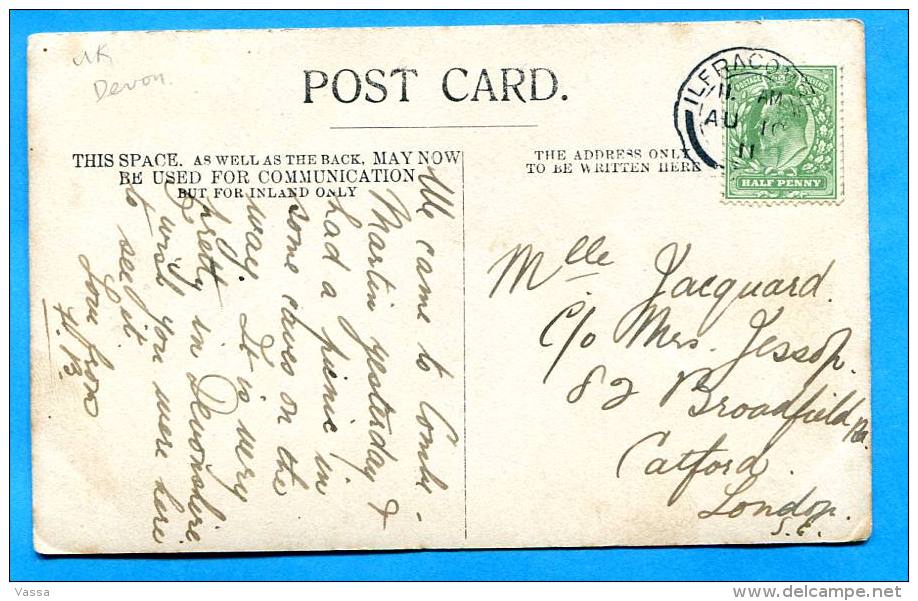 UK
Devon.
POST CARD.
THIS SPACE. AS WELL AS THE BACK, MAY NOW
BE USED FOR COMMUNICATION
BUT FOR INLAND ONLY
THE ADDRESS ONLY
TO BE WRITTEN HERE
ILFRACOMBE
11. AM
AU 16
11
HALF PENNY
We came to Combe-
Martin yesterday &
had a picnic in
some caves on the
way. It is very
pretty in Devonshire
I wish you were here
to see it.
Love from
H. B.
Mlle Jacquard.
C/o Mrs. Jessop.
82 Broadfield Rd.
Catford.
London.
S.E.
Vassa
delcampe.net